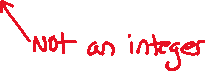 Not an integer